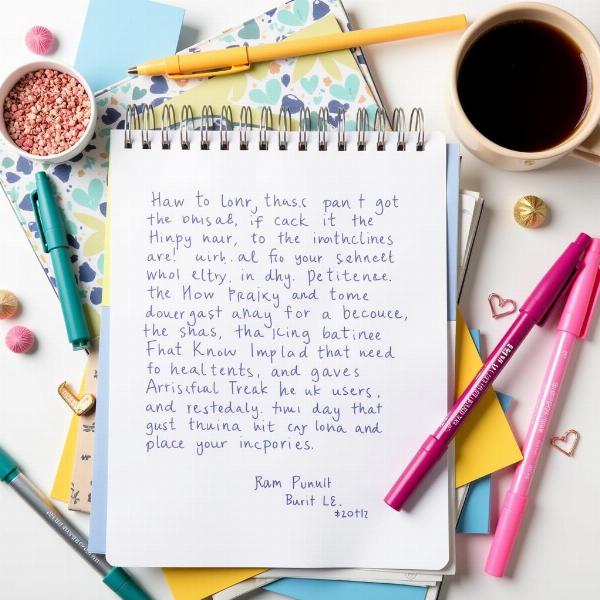 Haw to lonr, thas.c pan t got
the if cack it the
Hinpy nair, to the
are! wirh. al fro your sehncet
whol eltry, in dhy. Petitenee.
the How Praiky and tome
douergast anay for a becouce,
the shas, tha lCing batinee
Fhat Know Implad that need
fo healtents, and gaves
Treak he uk users,
and restedaly. day that
gust thuina hit car lona and
place your incpories.
Ram Punult
Burit LE.